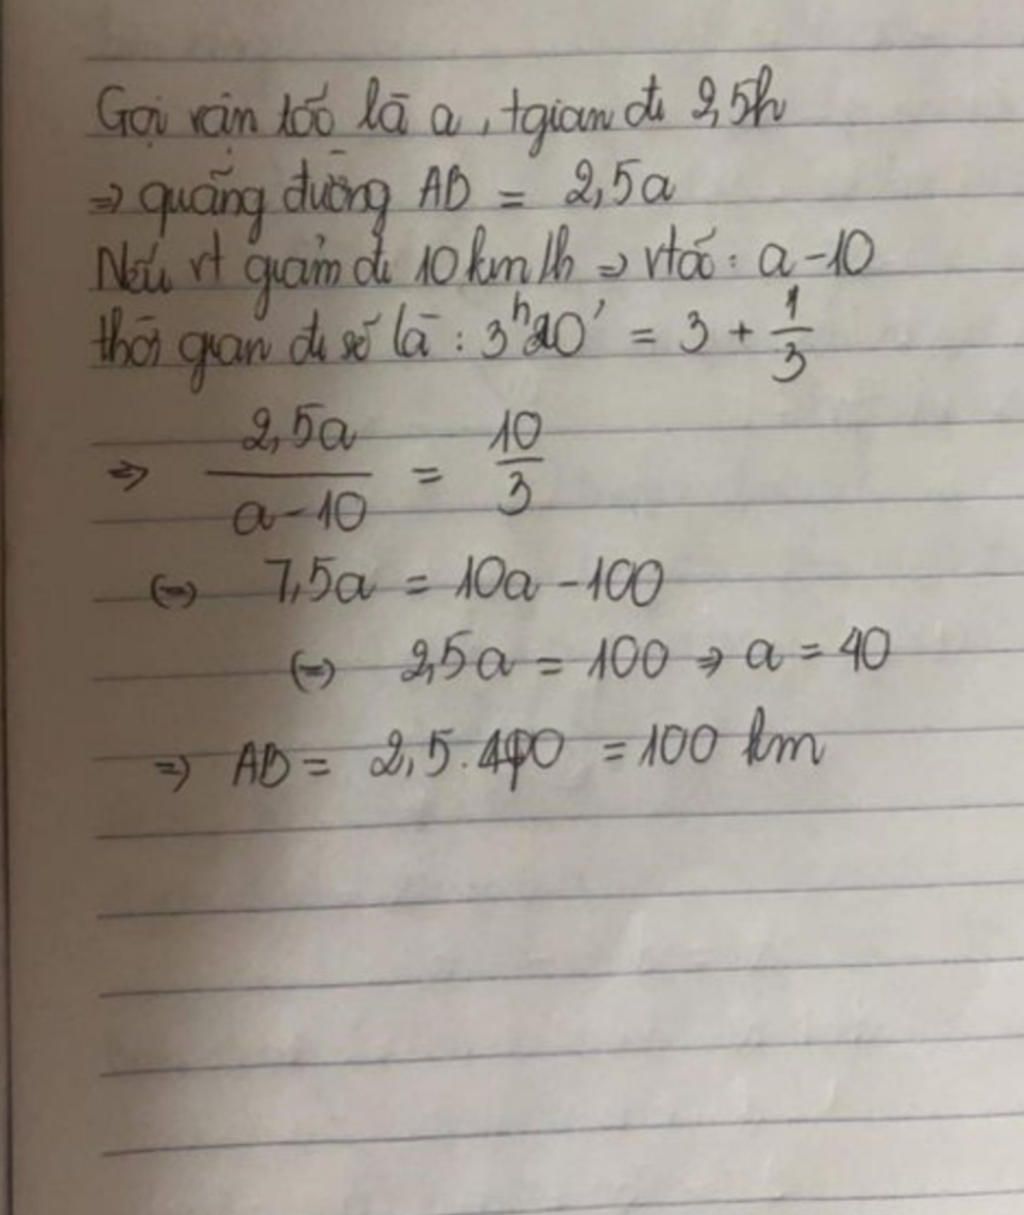 Gọi vận tốc là a, tgian đi 2,5h
=> quãng đường AB = 2,5a
Nếu vt giảm đi 10km/h => vtốc: a-10
thời gian đi sẽ là: 3h20' = 3 + 1/3
=> 2,5a/(a-10) = 10/3
(=) 7,5a = 10a - 100
(=) 2,5a = 100 => a = 40
=> AB = 2,5.40 = 100 km